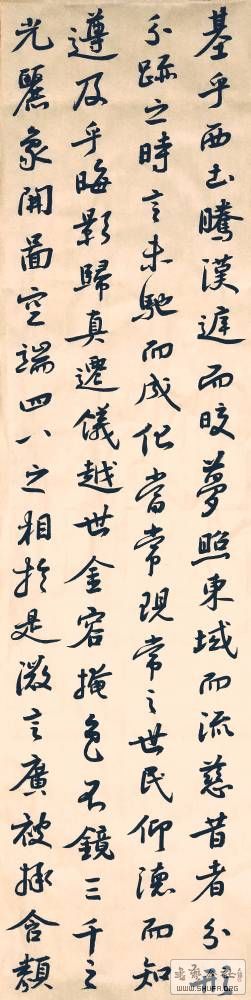 基乎西土騰漢庭而皎夢照東域而流慈昔者分形
分跡之時言未馳而成化當常現常之世民仰德而知
遵及乎晦影歸真遷儀越世金容掩色不鏡三千之
光麗象開圖空端四八之相於是微言廣被拯含類